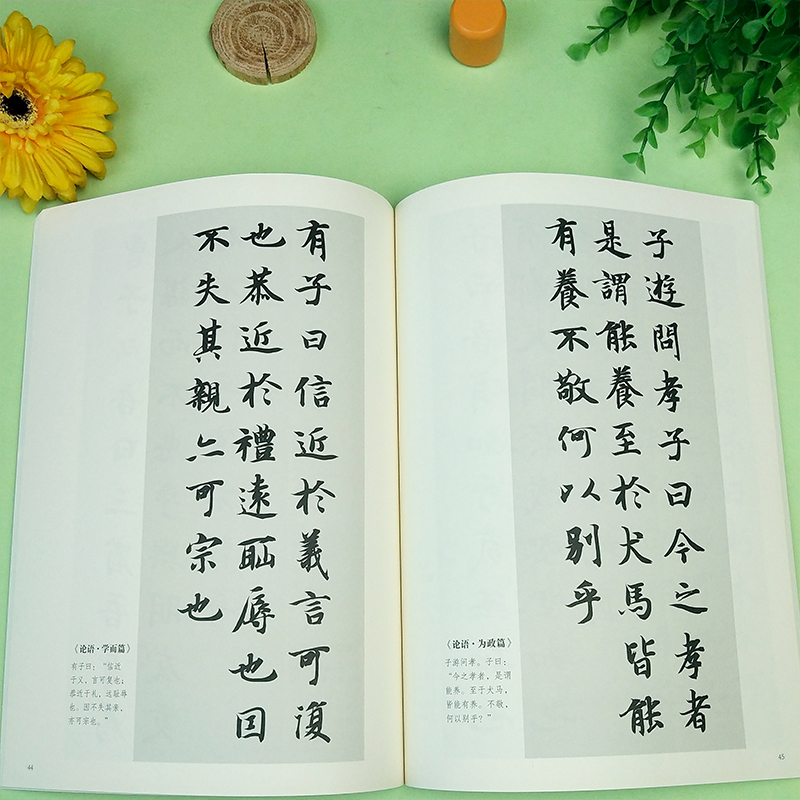 有子曰信近於義言可復
也恭近於禮遠恥辱也因
不失其親亦可宗也
《论语·学而篇》
有子曰：“信近
于义，言可复也；
恭近于礼，远耻辱
也。因不失其亲，
亦可宗也。”
44
子遊問孝子曰今之孝者
是謂能養至於犬馬皆能
有養不敬何以別乎
《论语·为政篇》
子游问孝。子曰：
“今之孝者，是谓
能养。至于犬马，
皆能有养。不敬，
何以别乎？”
45